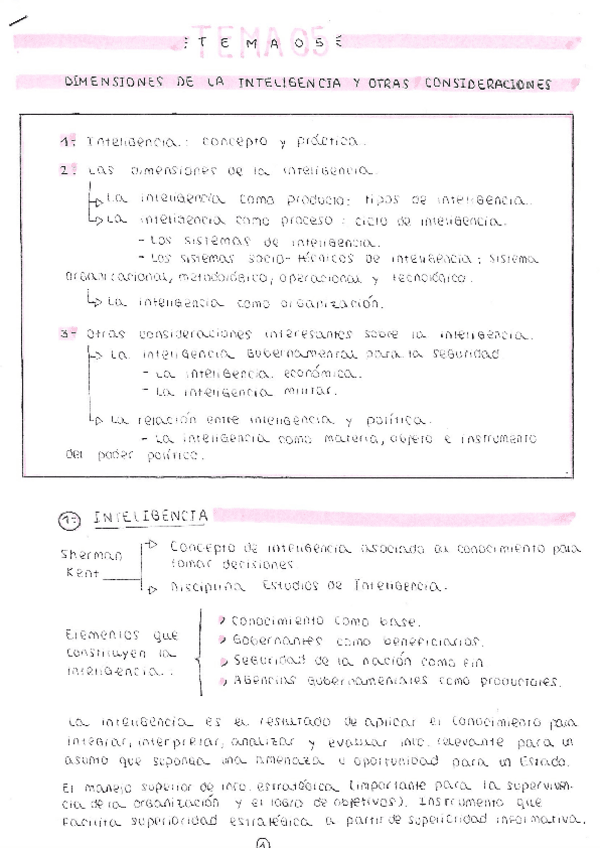 TEMA 05
DIMENSIONES DE LA INTELIGENCIA Y OTRAS CONSIDERACIONES
1- Inteligencia: concepto y práctica.
2- Las dimensiones de la inteligencia.
La inteligencia como producto: tipos de inteligencia.
La inteligencia como proceso: ciclo de inteligencia.
- Los sistemas de inteligencia.
- Los sistemas socio-técnicos de inteligencia: sistema
organizacional, metodológico, operacional y tecnológico.
La inteligencia como organización.
3- Otras consideraciones interesantes sobre la inteligencia.
La inteligencia gubernamental para la seguridad
- La inteligencia económica.
- La inteligencia militar.
La relación entre inteligencia y política.
- La inteligencia como materia, objeto e instrumento
del poder político.
1- INTELIGENCIA
Sherman Kent
Concepto de inteligencia asociado al conocimiento para
tomar decisiones.
Disciplina Estudios de Inteligencia.
Elementos que
constituyen la
inteligencia:
Conocimiento como base.
Gobernantes como beneficiarios.
Seguridad de la nación como fin
Agencias gubernamentales como productores.
La inteligencia es el resultado de aplicar el conocimiento para
integrar, interpretar, analizar y evaluar info. relevante para un
asunto que suponga una amenaza u oportunidad para un Estado.
El manejo superior de info. estratégica (importante para la superviven-
cia de la organización y el logro de objetivos). Instrumento que
facilita superioridad estratégica a partir de superioridad informativa.
1